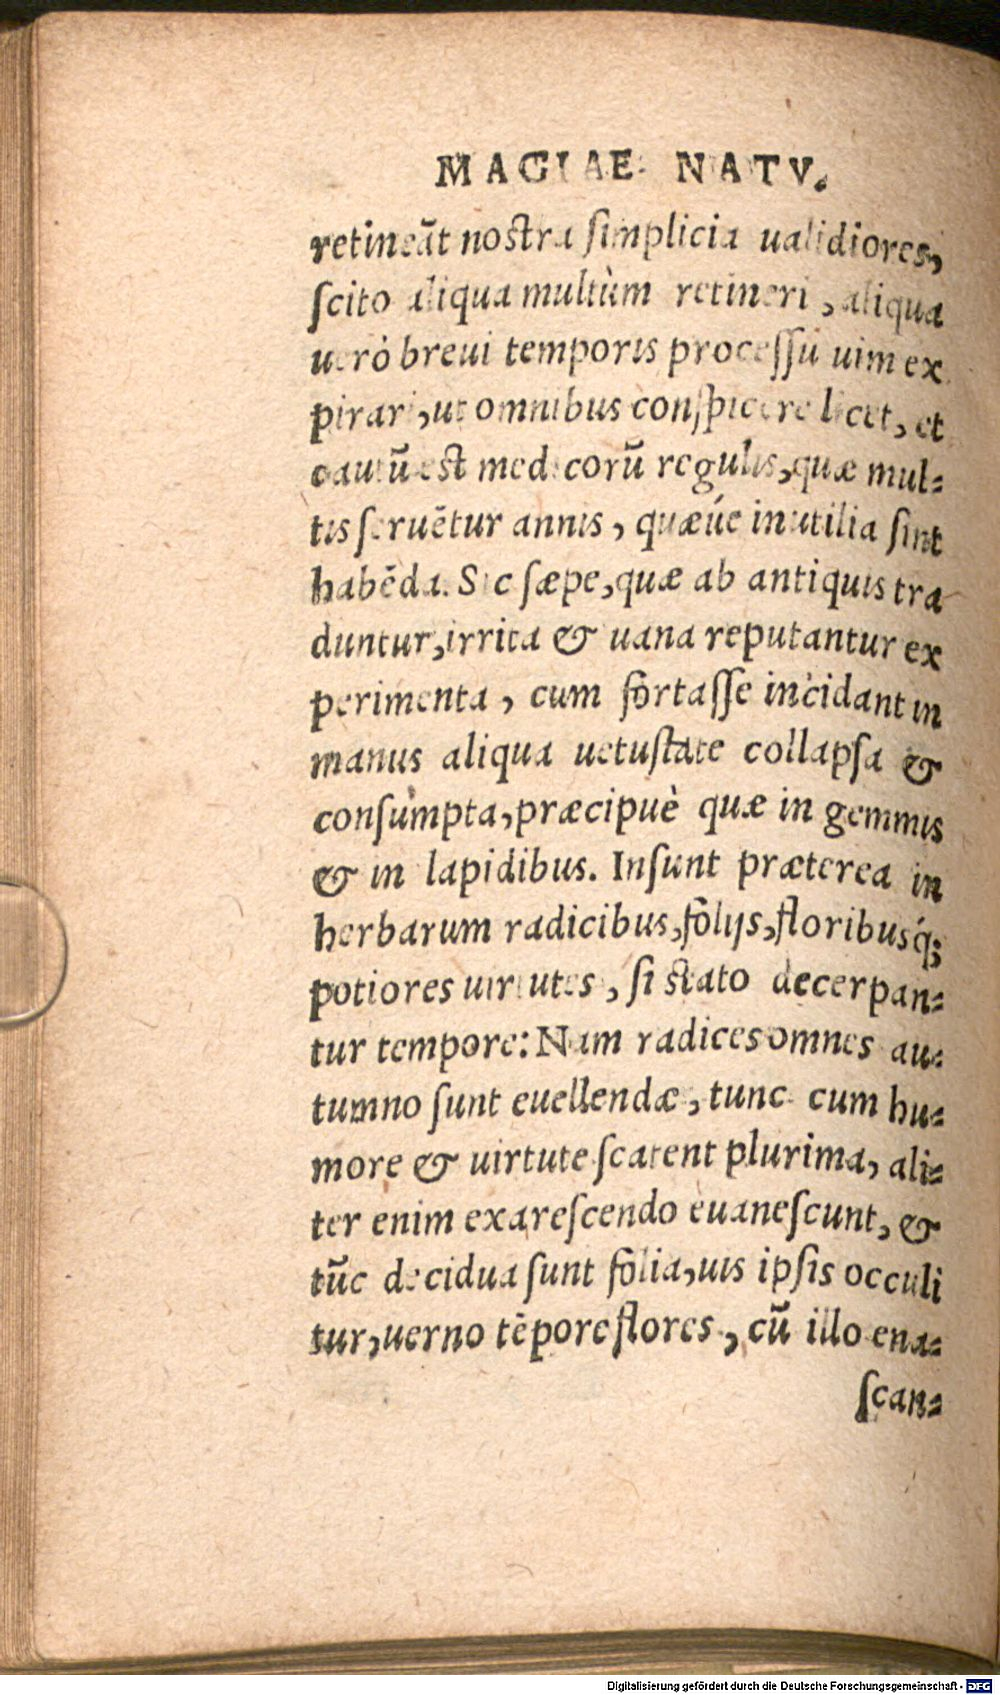 MAGIAE NATV.
retineāt nostra ſimplicia ualidiores,
ſcito aliqua multùm retineri, aliqua
uerò breui temporis proceſſu uim ex
pirari, ut omnibus conſpicere licet, et
cautū est medicorū regulis, quæ mul-
tis ſeruētur annis, quæúe inutilia ſint
habēda. Sic ſæpe, quæ ab antiquis tra
duntur, irrita & uana reputantur ex
perimenta, cum fortaſſe incidant in
manus aliqua uetuſtate collapſa &
conſumpta, præcipuè quæ in gemmis
& in lapidibus. Inſunt præterea in
herbarum radicibus, folijs, floribusq́;
potiores uirtutes, ſi stato decerpan-
tur tempore: Nam radices omnes au-
tumno ſunt euellendæ, tunc cum hu-
more & uirtute ſcatent plurima, ali-
ter enim exareſcendo euaneſcunt, &
tūc decidua ſunt folia, uis ipſis occuli
tur, uerno tēpore flores, cū illo ena-
ſcan-
Digitalisierung gefördert durch die Deutsche Forschungsgemeinschaft - DFG